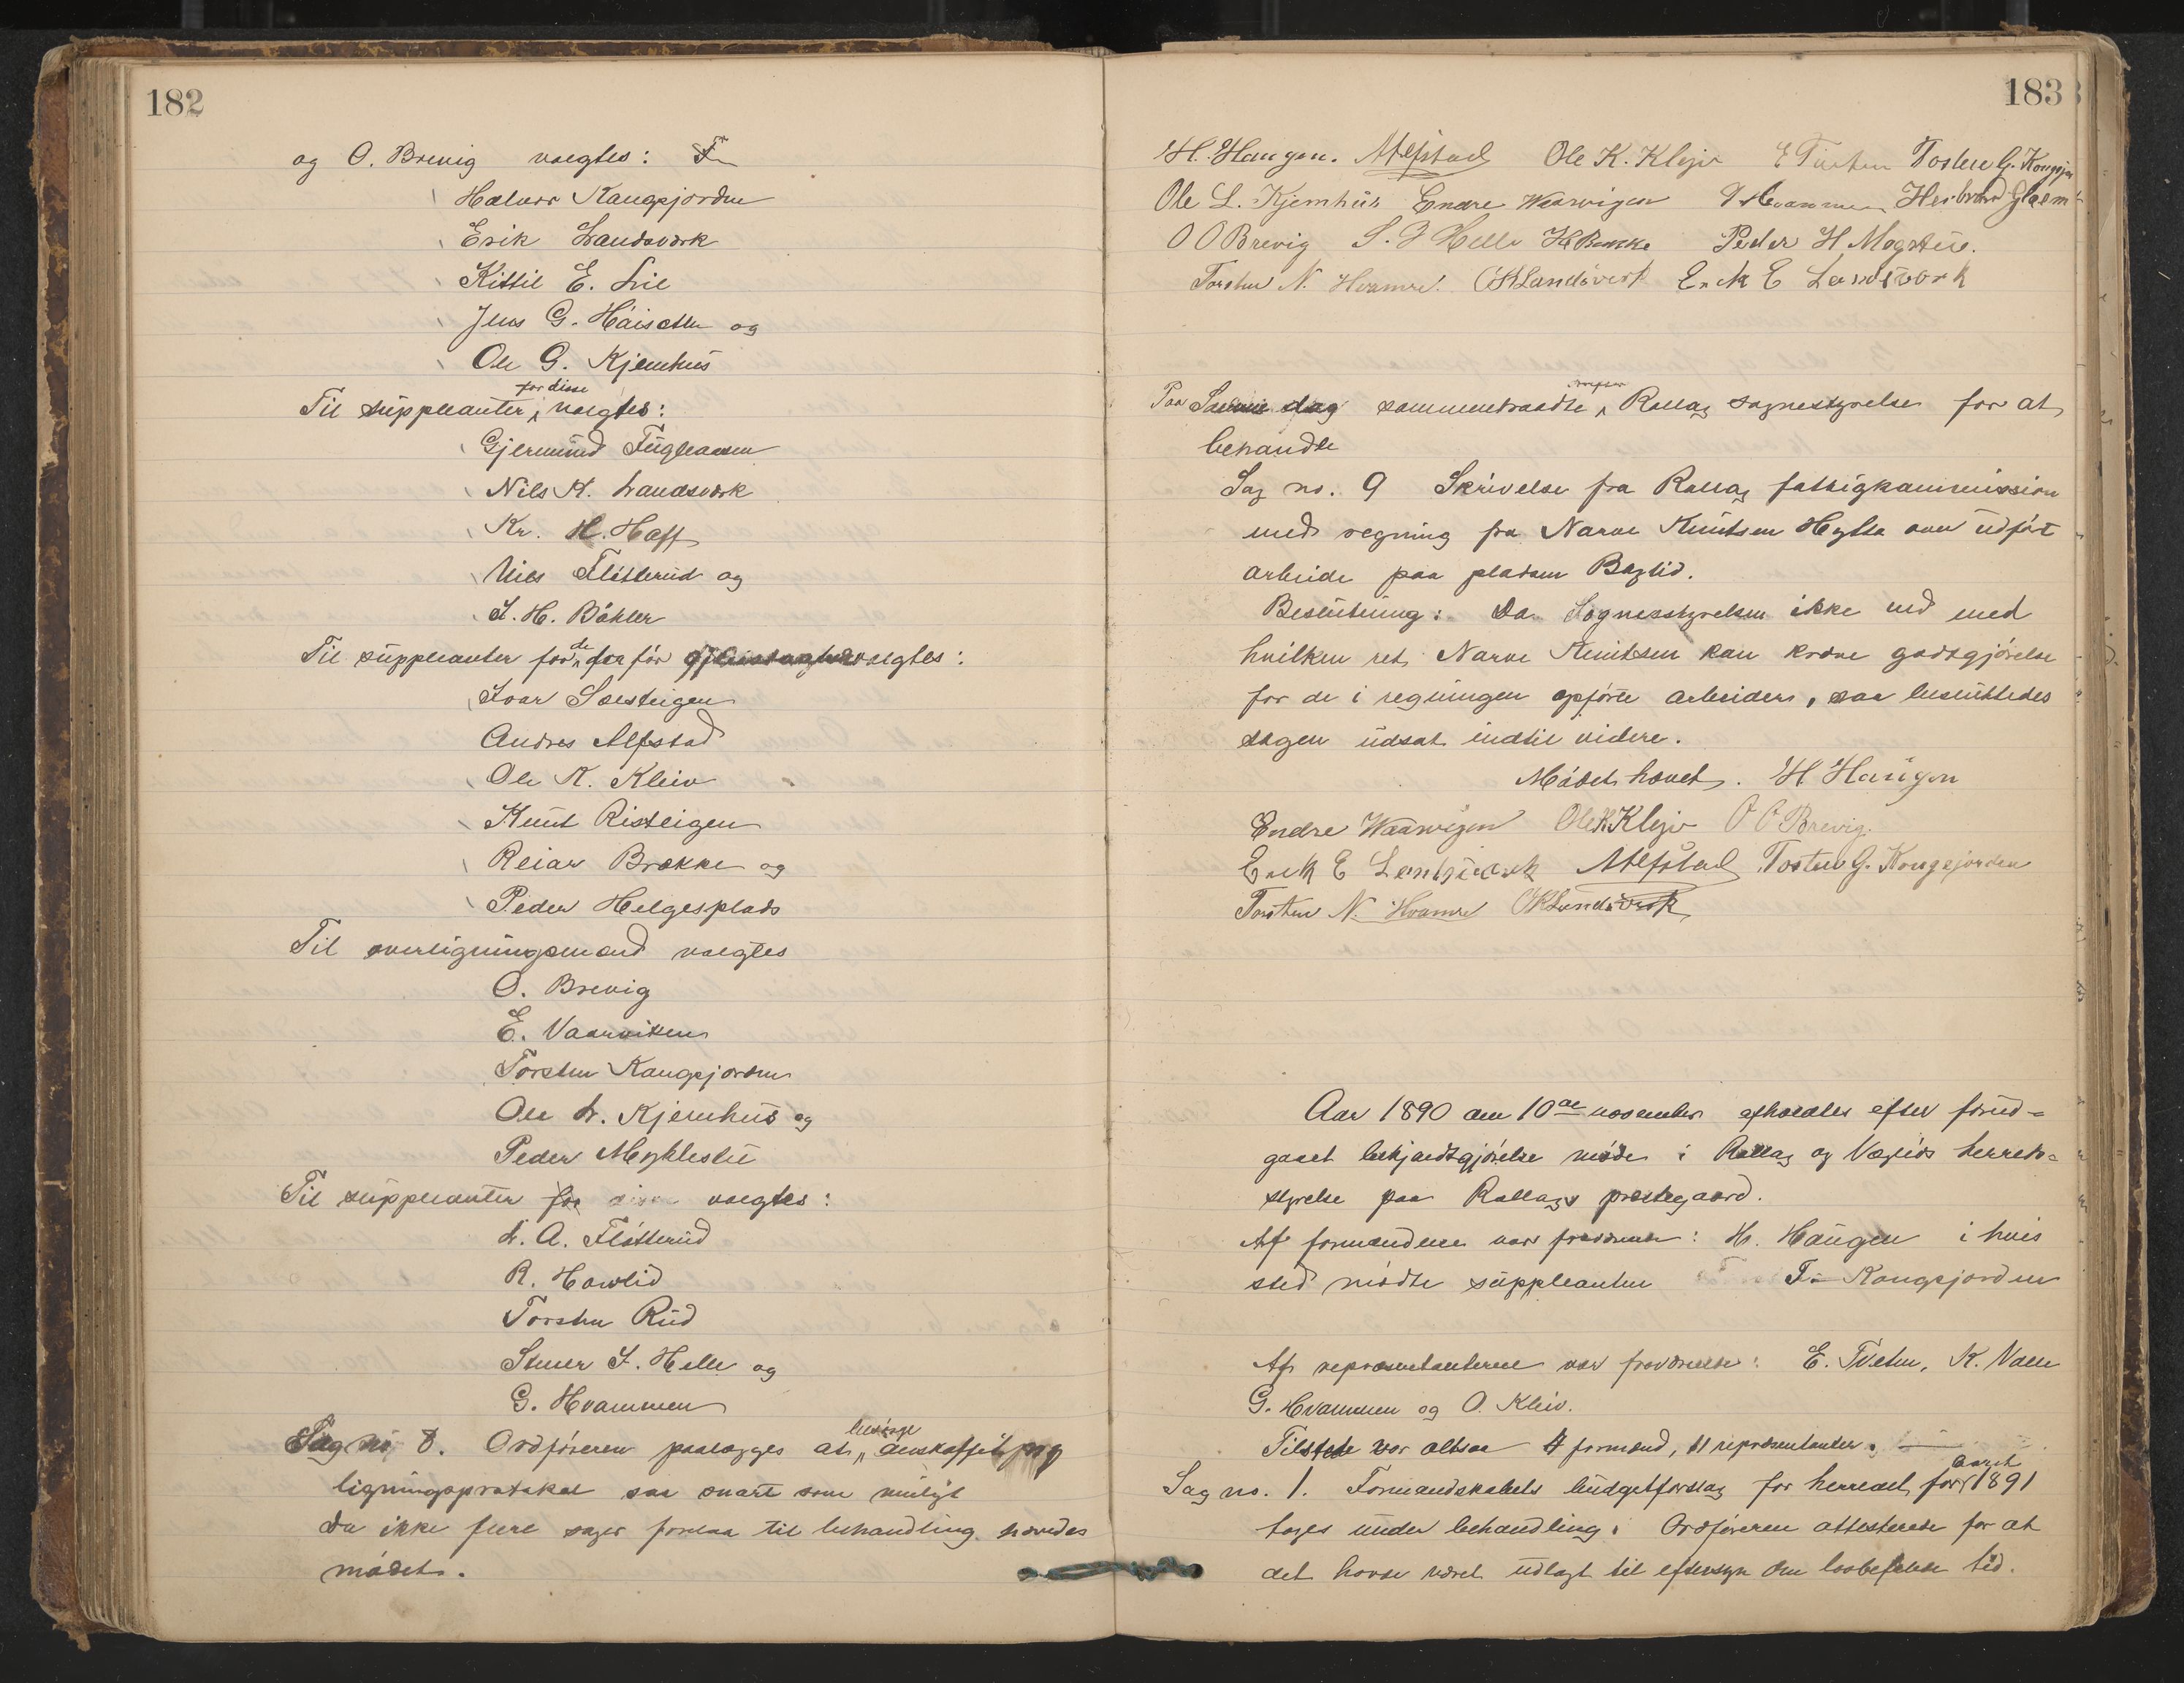 182
og O. Brevig valgtes:
Halvor Kangsjorden
Erik Landsværk
Kittil E. Lie
Jens G. og
Ole G. Kjemhus
Til suppleanter for disse valgtes:
Gjermund Fugleaasen
Nils K. Landsværk
Kr. H. Hoff
Nils Fløtterud og
S. H. Bøhler
Til suppleanter for de valgtes:
Ivar Sæsteigen
Andres Alfstad
Ole K. Kleiv
Knut Risteigen
Reiar Brække og
Peder Helgesplads
Til overligningsmænd valgtes
O. Brevig
E. Vaarviken
Torsten Kangsjorden
Ole L. Kjemhus og
Peder Mykkestu
Til suppleanter for disse valgtes:
L. A. Fløtterud
R. Hawlid
Torsten Rud
Stener S. Helle og
G. Hvammen
Sag no 8. Ordføreren paalægges at besørge anskaffet ny
ligningsprotokol saa snart som muligt
Da ikke flere sager forelaa til behandling hævedes
mødet.
183
H. Haugen. AAlfstad Ole K. Klejv E Tveten Tosten G. Kongsjor
Ole L. Kjemhus Endre Waarvigen G Hvammen Herbrand
O O Brevig S. S Helle HBrække Peder H Mogstue.
Torsten N. Hvamre. OKLandsverk Erek E Landsvork
Paa Samme dag sammentraadte Rollag sognestyrelse for at
behandle
Sag no. 9 Skrivelse fra Rollag fattigkommission
med regning fra Narve Knutsen Hylla over udført
arbeide paa pladsen Baglid.
Beslutning: Da Sognestyrelsen ikke ved med
hvilken ret Narve Knutsen kan kræve godtgjørelse
for de i regningen opførte arbeider, saa besluttedes
sagen udsat indtil videre.
Mødet hævet. H Haugen
Endre Waarvigen OleKKlejv O O Brevig.
Erek E Landsvork AAlfstad Tosten G. Kongsjorden
Torsten N. Hvamre OKLandsverk
Aar 1890 den 10de november afholdtes efter forud=
gaaet bekjendtgjørelse møde i Rollag og Veglids herreds=
styrelse paa Rollags prestegaard.
Af formændene var fraværende: H. Haugen i hvis
sted mødte suppleanten T. Kongsjorden
Af repræsentanterne var fraværende: E. Tveten, K. Vaen
G. Hvammen og O. Kleiv.
Tilstede var altsaa 4 formænd, 11 repræsentanter.
Sag no. 1. Formandskabets budgetforslag for herredet for aaret 1891
toges under behandling. Ordføreren attesterede for at
det havde været udlagt til eftersyn den lovbefalede tid.